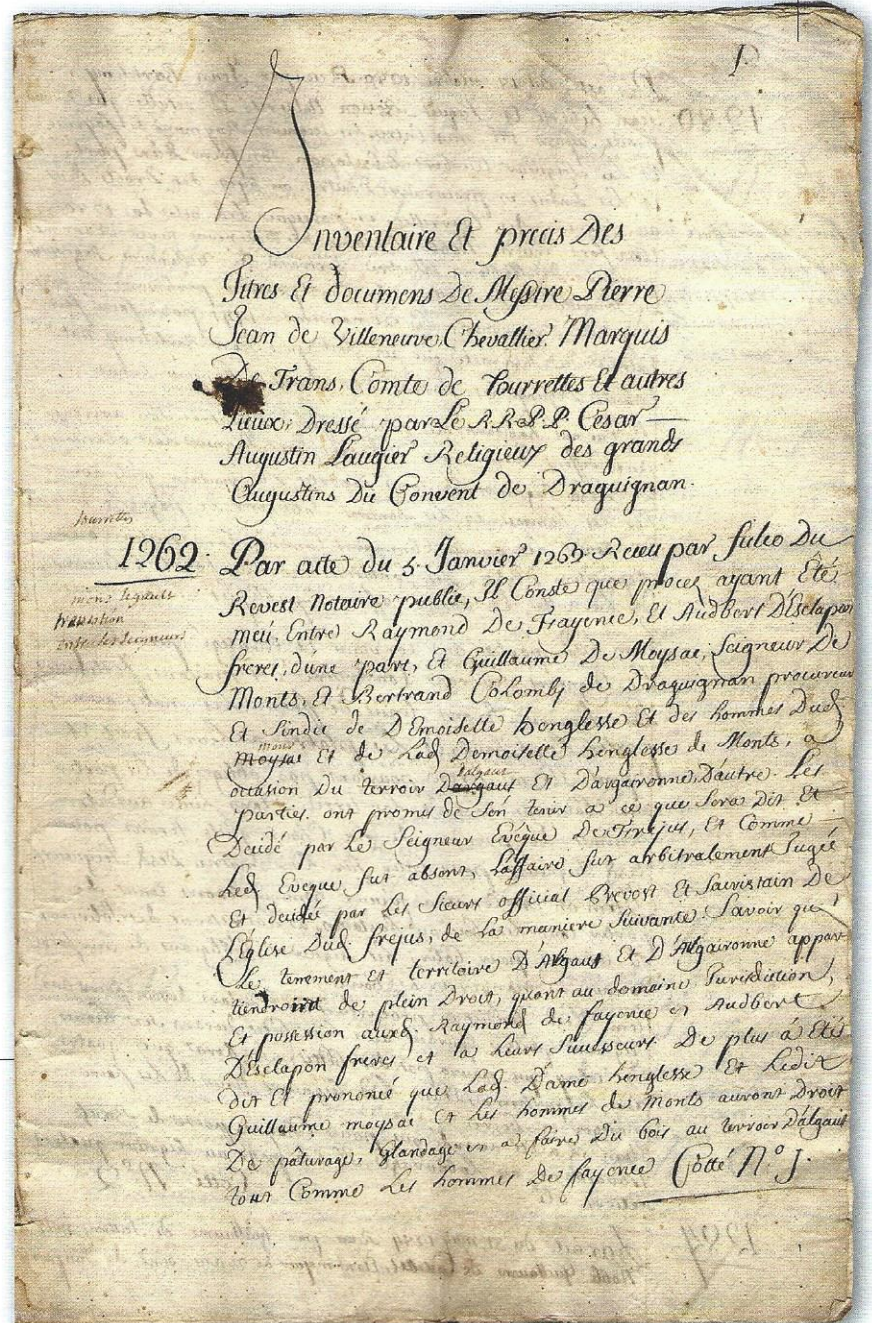 1
Inventaire Et precis Des
Titres Et documens De Messire Pierre
Jean de Villeneuve Chevallier Marquis
De Trans, Comte de Tourrettes Et autres
Lieux, Dressé par Le R.R.P.P. Cesar
Augustin Laugier Religieux des grands
Augustins Du Convent de Draguignan.
1262. Par acte du 5. Janvier 1262 Receu par Du
Revest Notaire public, Il Conste que proces ayant Eté
meu, Entre Raymond De Frayence, Et Audbert D'Esclapon
freres, d'une part, Et Guillaume De Moysac, Seigneur De
Monts, Et Bertrand Colomb, de Draguignan procureur
Et Sindic de DEmoiselle henglesse Et des hommes Dud.
transation
entre les seigneurs
monts
Moysac Et de Lad. Demoiselle henglesse de Monts, a
dalgaut
occasion Du terroir Dargaus Et D'argaironne, D'autre. Les
parties ont promis de S'en tenir a ce que Sera Dit Et
Decidé par Le Seigneur Evêque De Frejus, Et Comme
Led. Eveque fut absont, Laffaire fut arbitralement Jugée
Et decidée par Les Sieurs official Prevost Et Sacristain De
L'Église Dud. frejus, de La maniere Suivante. Savoir que
Le tenement et territoire D'Algaus Et D'Algaironne appart
tiendroint de plein Droit, quant au domaine Jurisdiction,
Et possession auxd. Raymond de fayence et Audbert
D'Esclapon freres et a Leurs Successeurs De plus à Etés
dit Et prononcé que Lad. Dame henglesse Et Ledit
Guillaume moysac et Les hommes de Monts auront Droit
De pâturage, Glandage et a faire Du bois au terroir D'algaus
tout Comme Les hommes De fayence Cotté N.º 1.